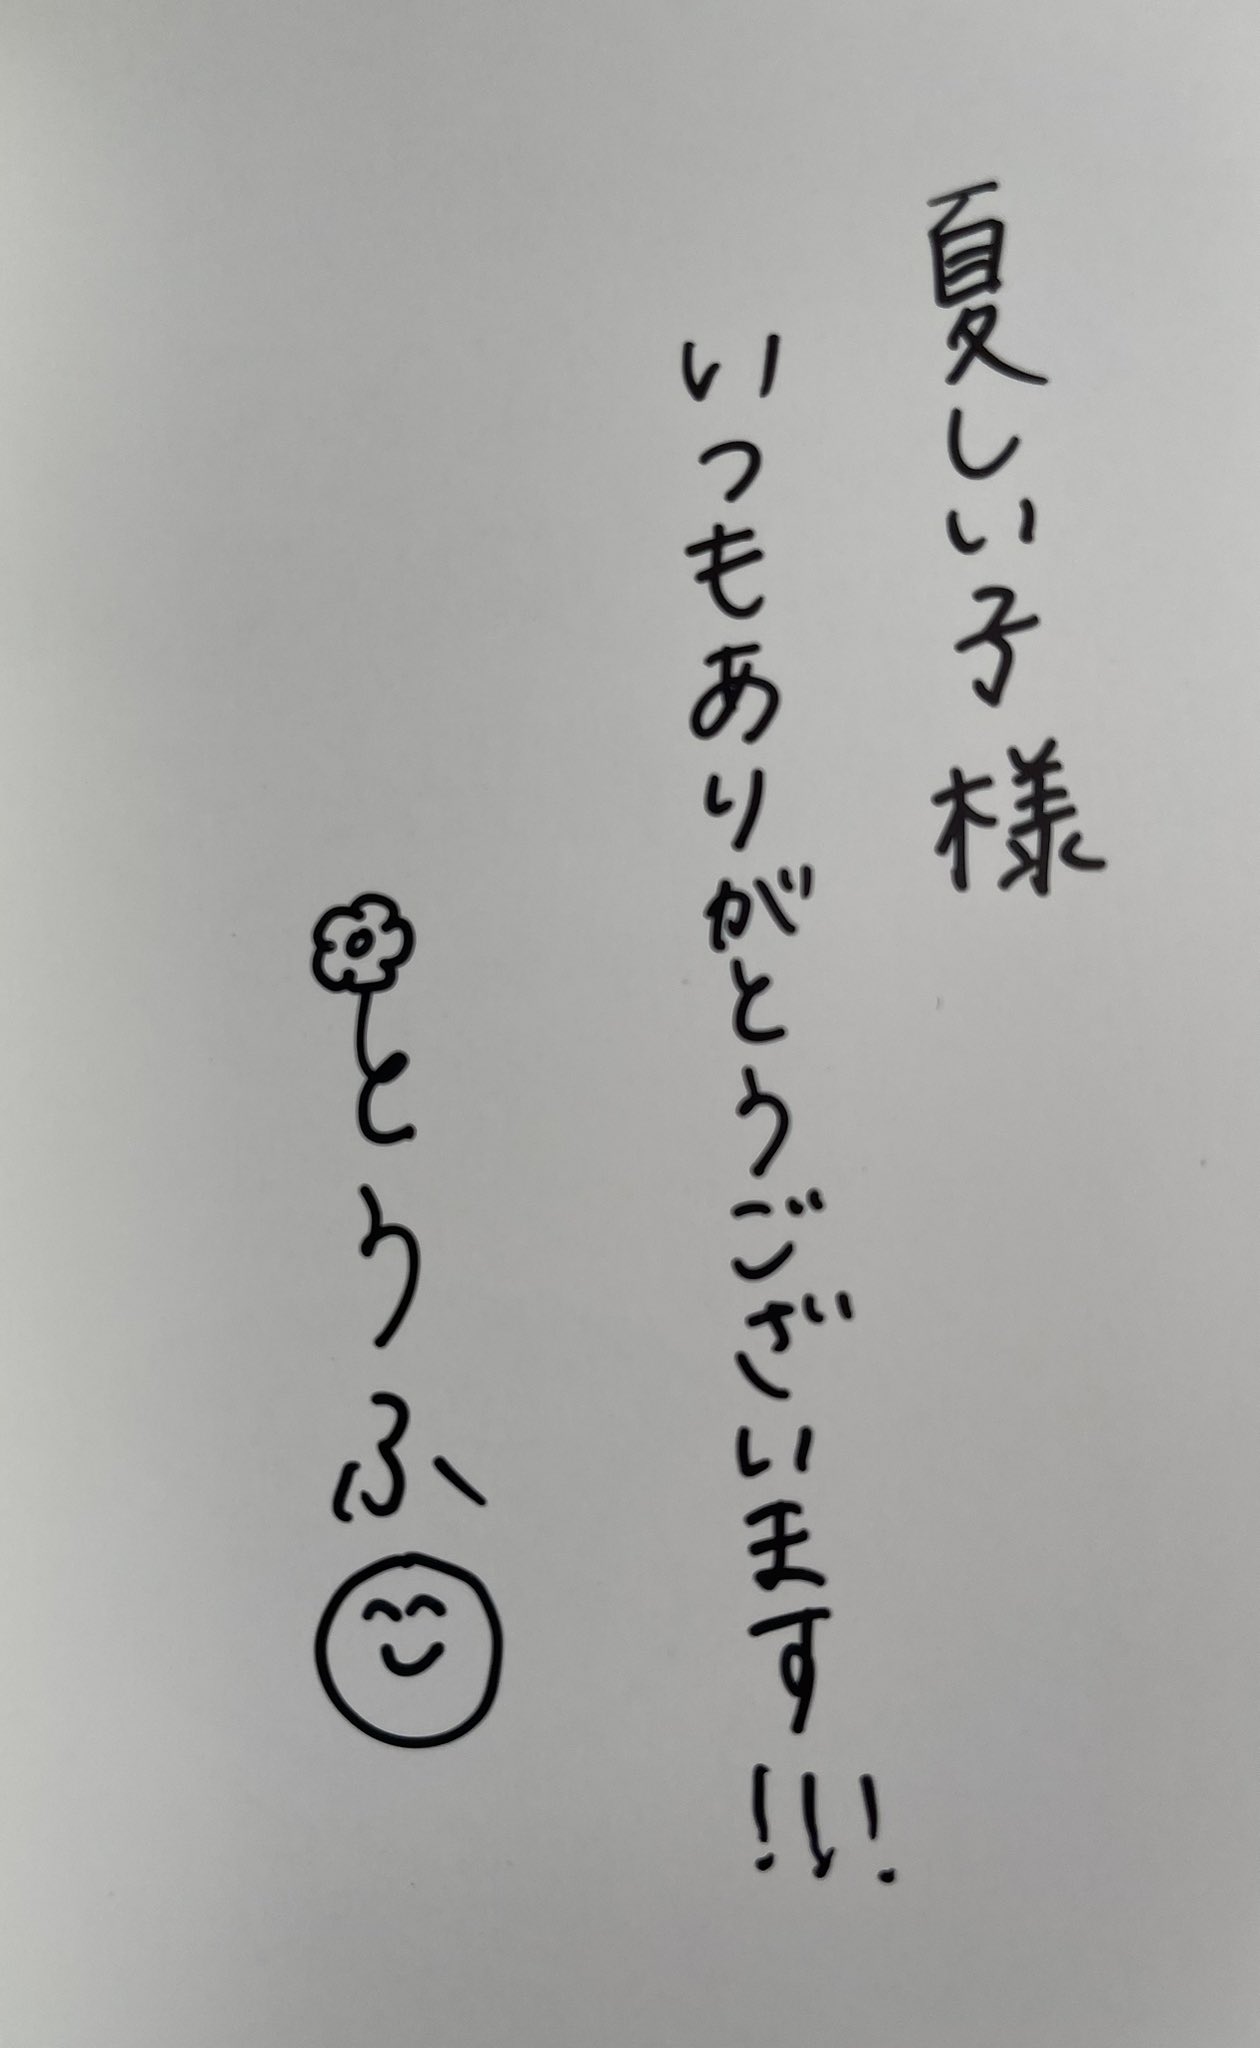 夏しい子様
いつもありがとうございます!!!
とうふ